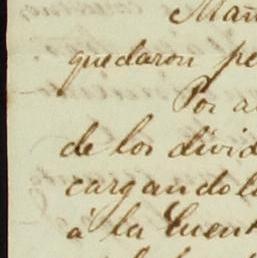 Mañ
quedaron pe
Por a
de los divid
cargandol
á la Cuent